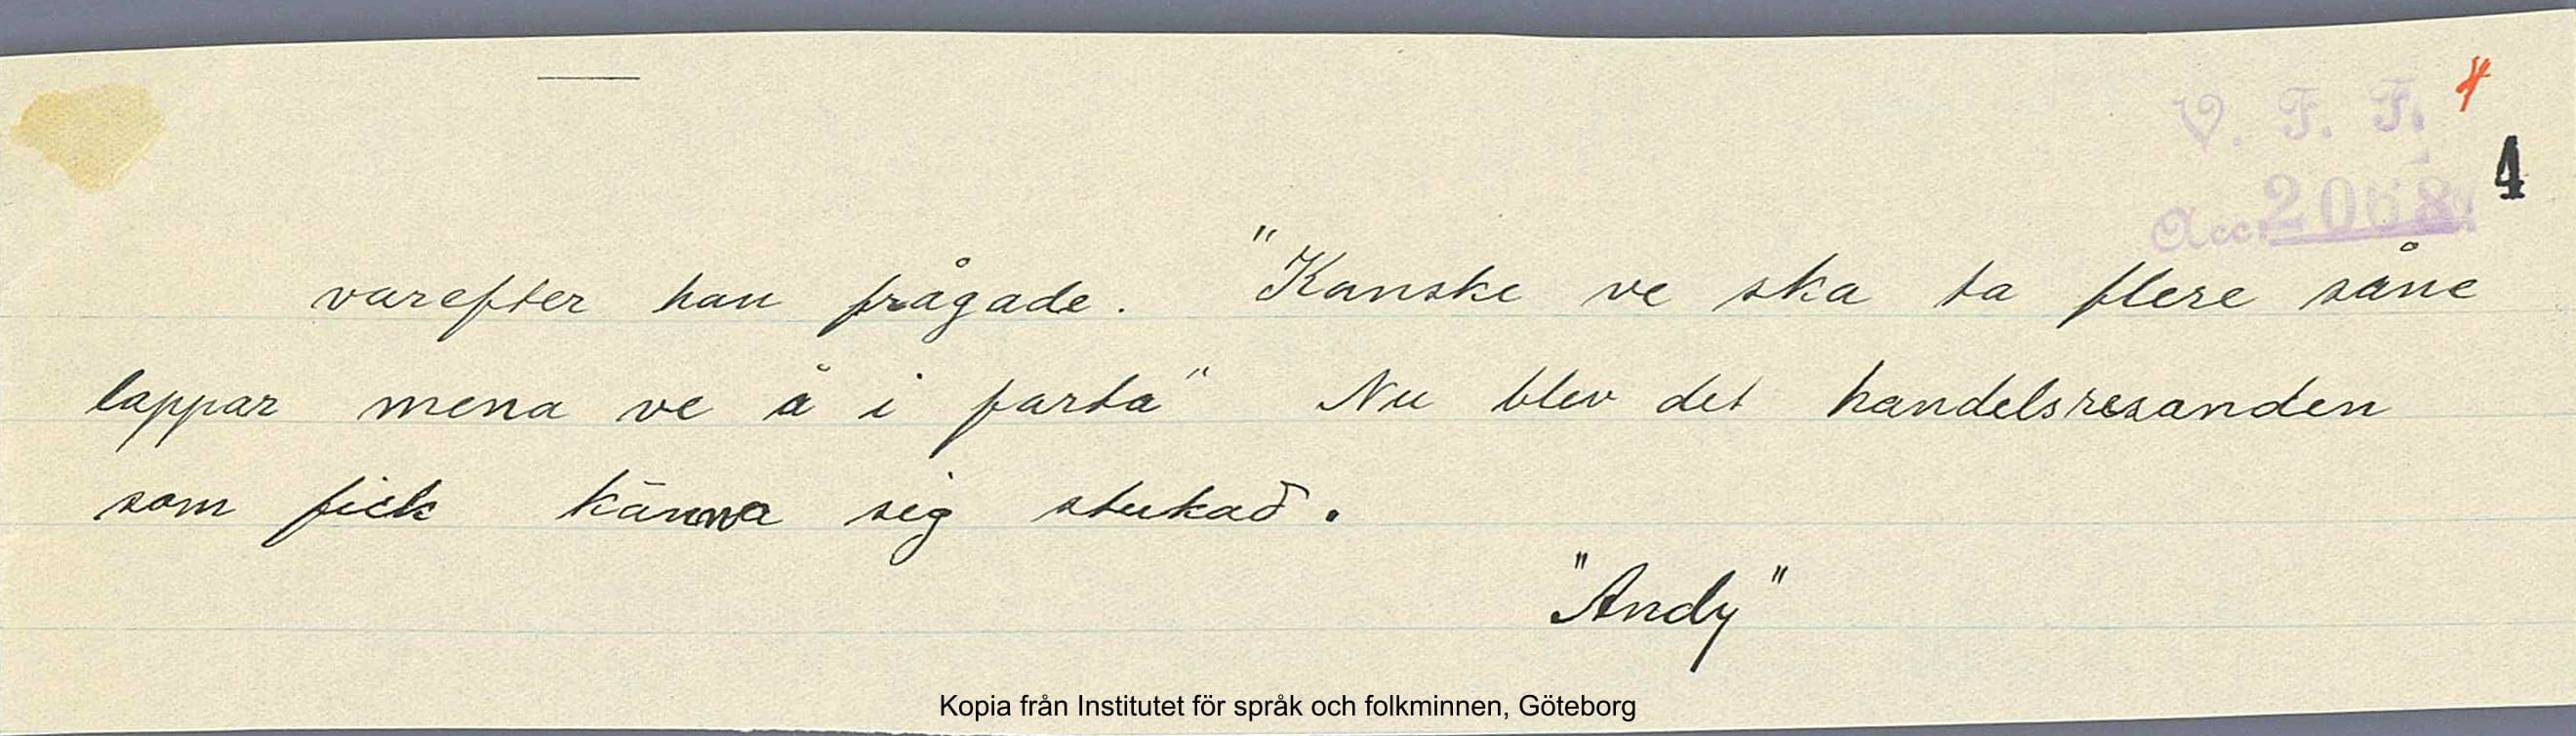 V. F. F.
4
Acc. 2068
varefter han frågade. "Kanske ve ska ta flere såne
lappar mena ve å i farta" Nu blev det handelsresanden
som fick känna sig stukad.
"Andy"
Kopia från Institutet för språk och folkminnen, Göteborg